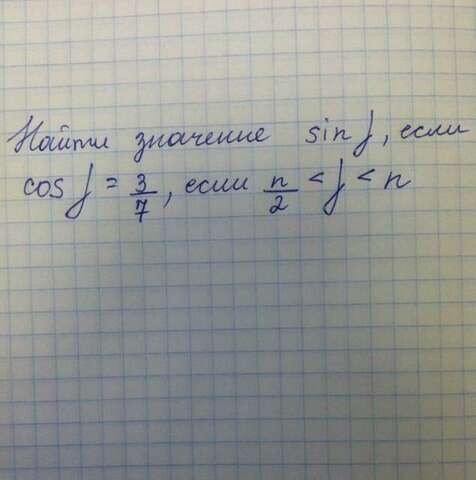 Найти значение sin f, если
cos f = 3/7, если п/2 < f < п